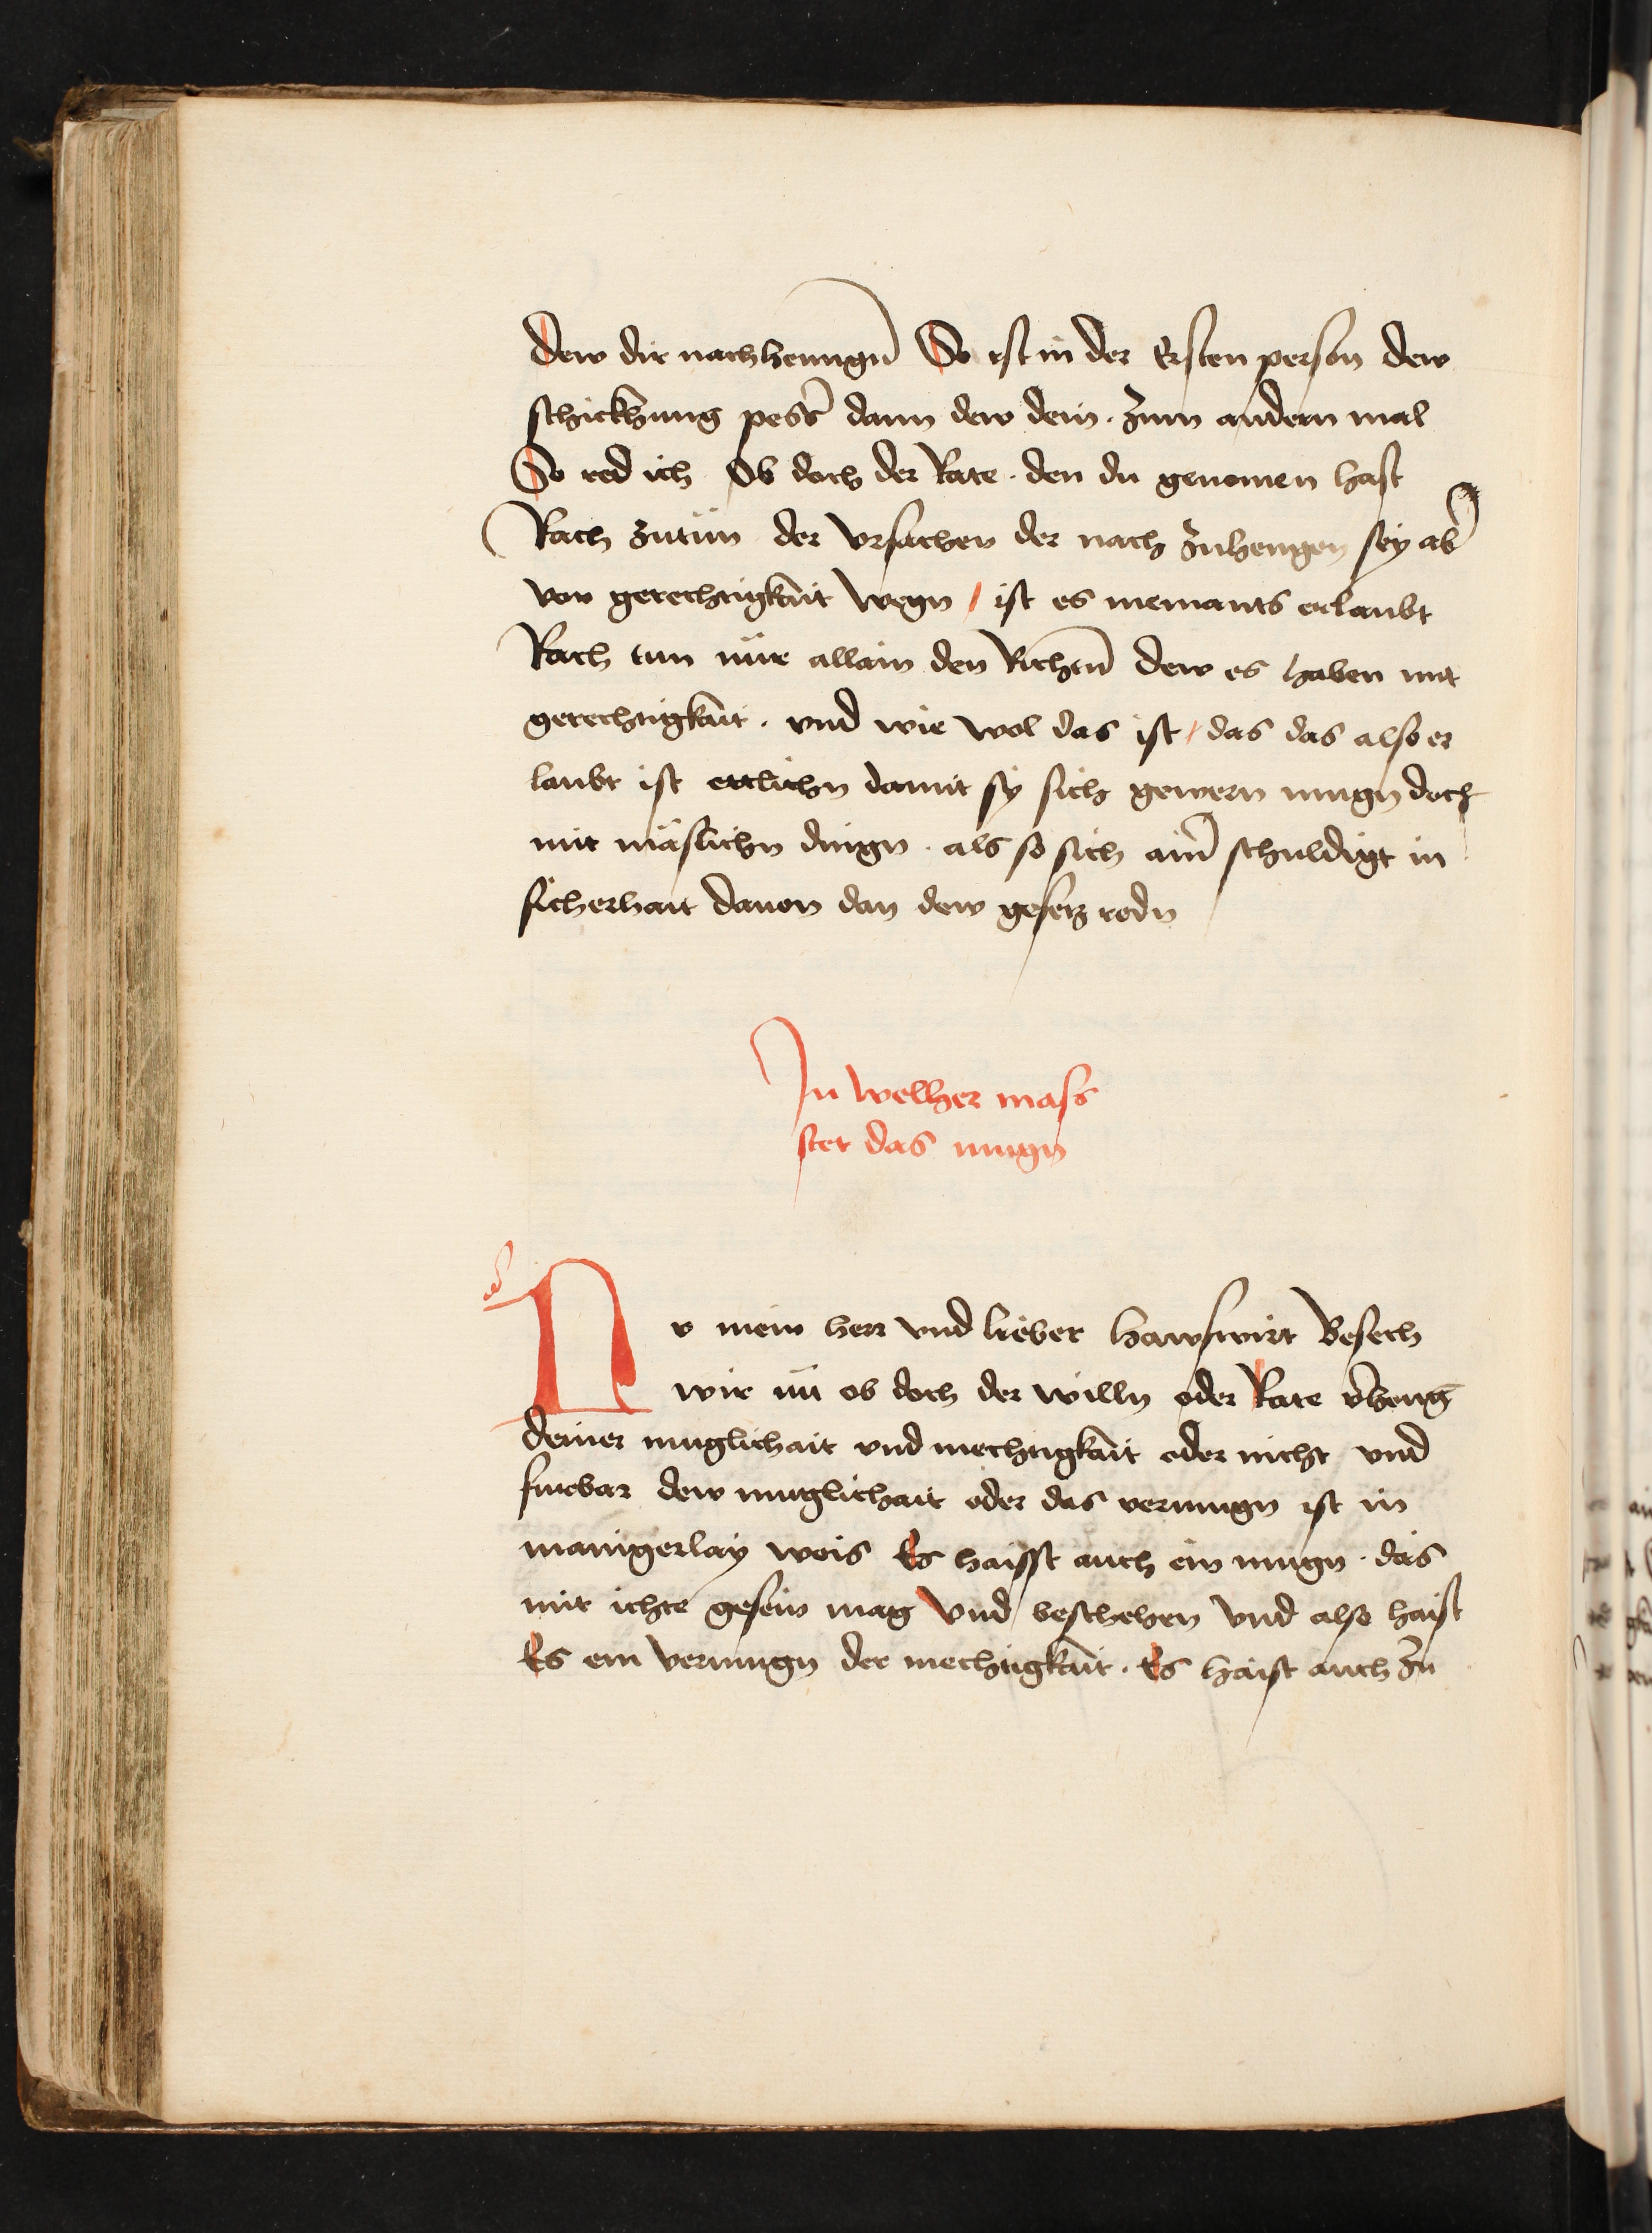 dew dir nachhenngn̄ So ist in der Ersten person dew
schickhung pesſ̄ dann dew dein · zum andern mal
So red ich Ob doch der Rate · den du genomen hast
Rach zutün der vrsachen der nach zuhengen sey ab̄
von gerechtigkait wegn / ist es niemants erlaubt
Rach tun nür allain den Richtn̄ dew es haben mit
gerechtigkait · vnd wie wol das ist / das das also er
laubt ist ettlichn damit sy sich gewern mugn doch
mit mäslichn dingn · als so sich ain̄ schuldigt in
sicherhait dauon dan dew gesetz redn
In welher mass
stet das mugn
Nv mein herr vnd lieber hawswirt Besech
wir nū ob doch der willn oder Rate v̄henḡ
deiner muglichait vnd mechtigkait oder nicht vnd
furbar dew muglichait oder das vermugn ist in
manigerlay weis Es haisst auch ein mugn · das
mit ichte gesein mag vnd beschehen vnd also haist
Es ein vermugn der mechtigkait · Es haist auch zu